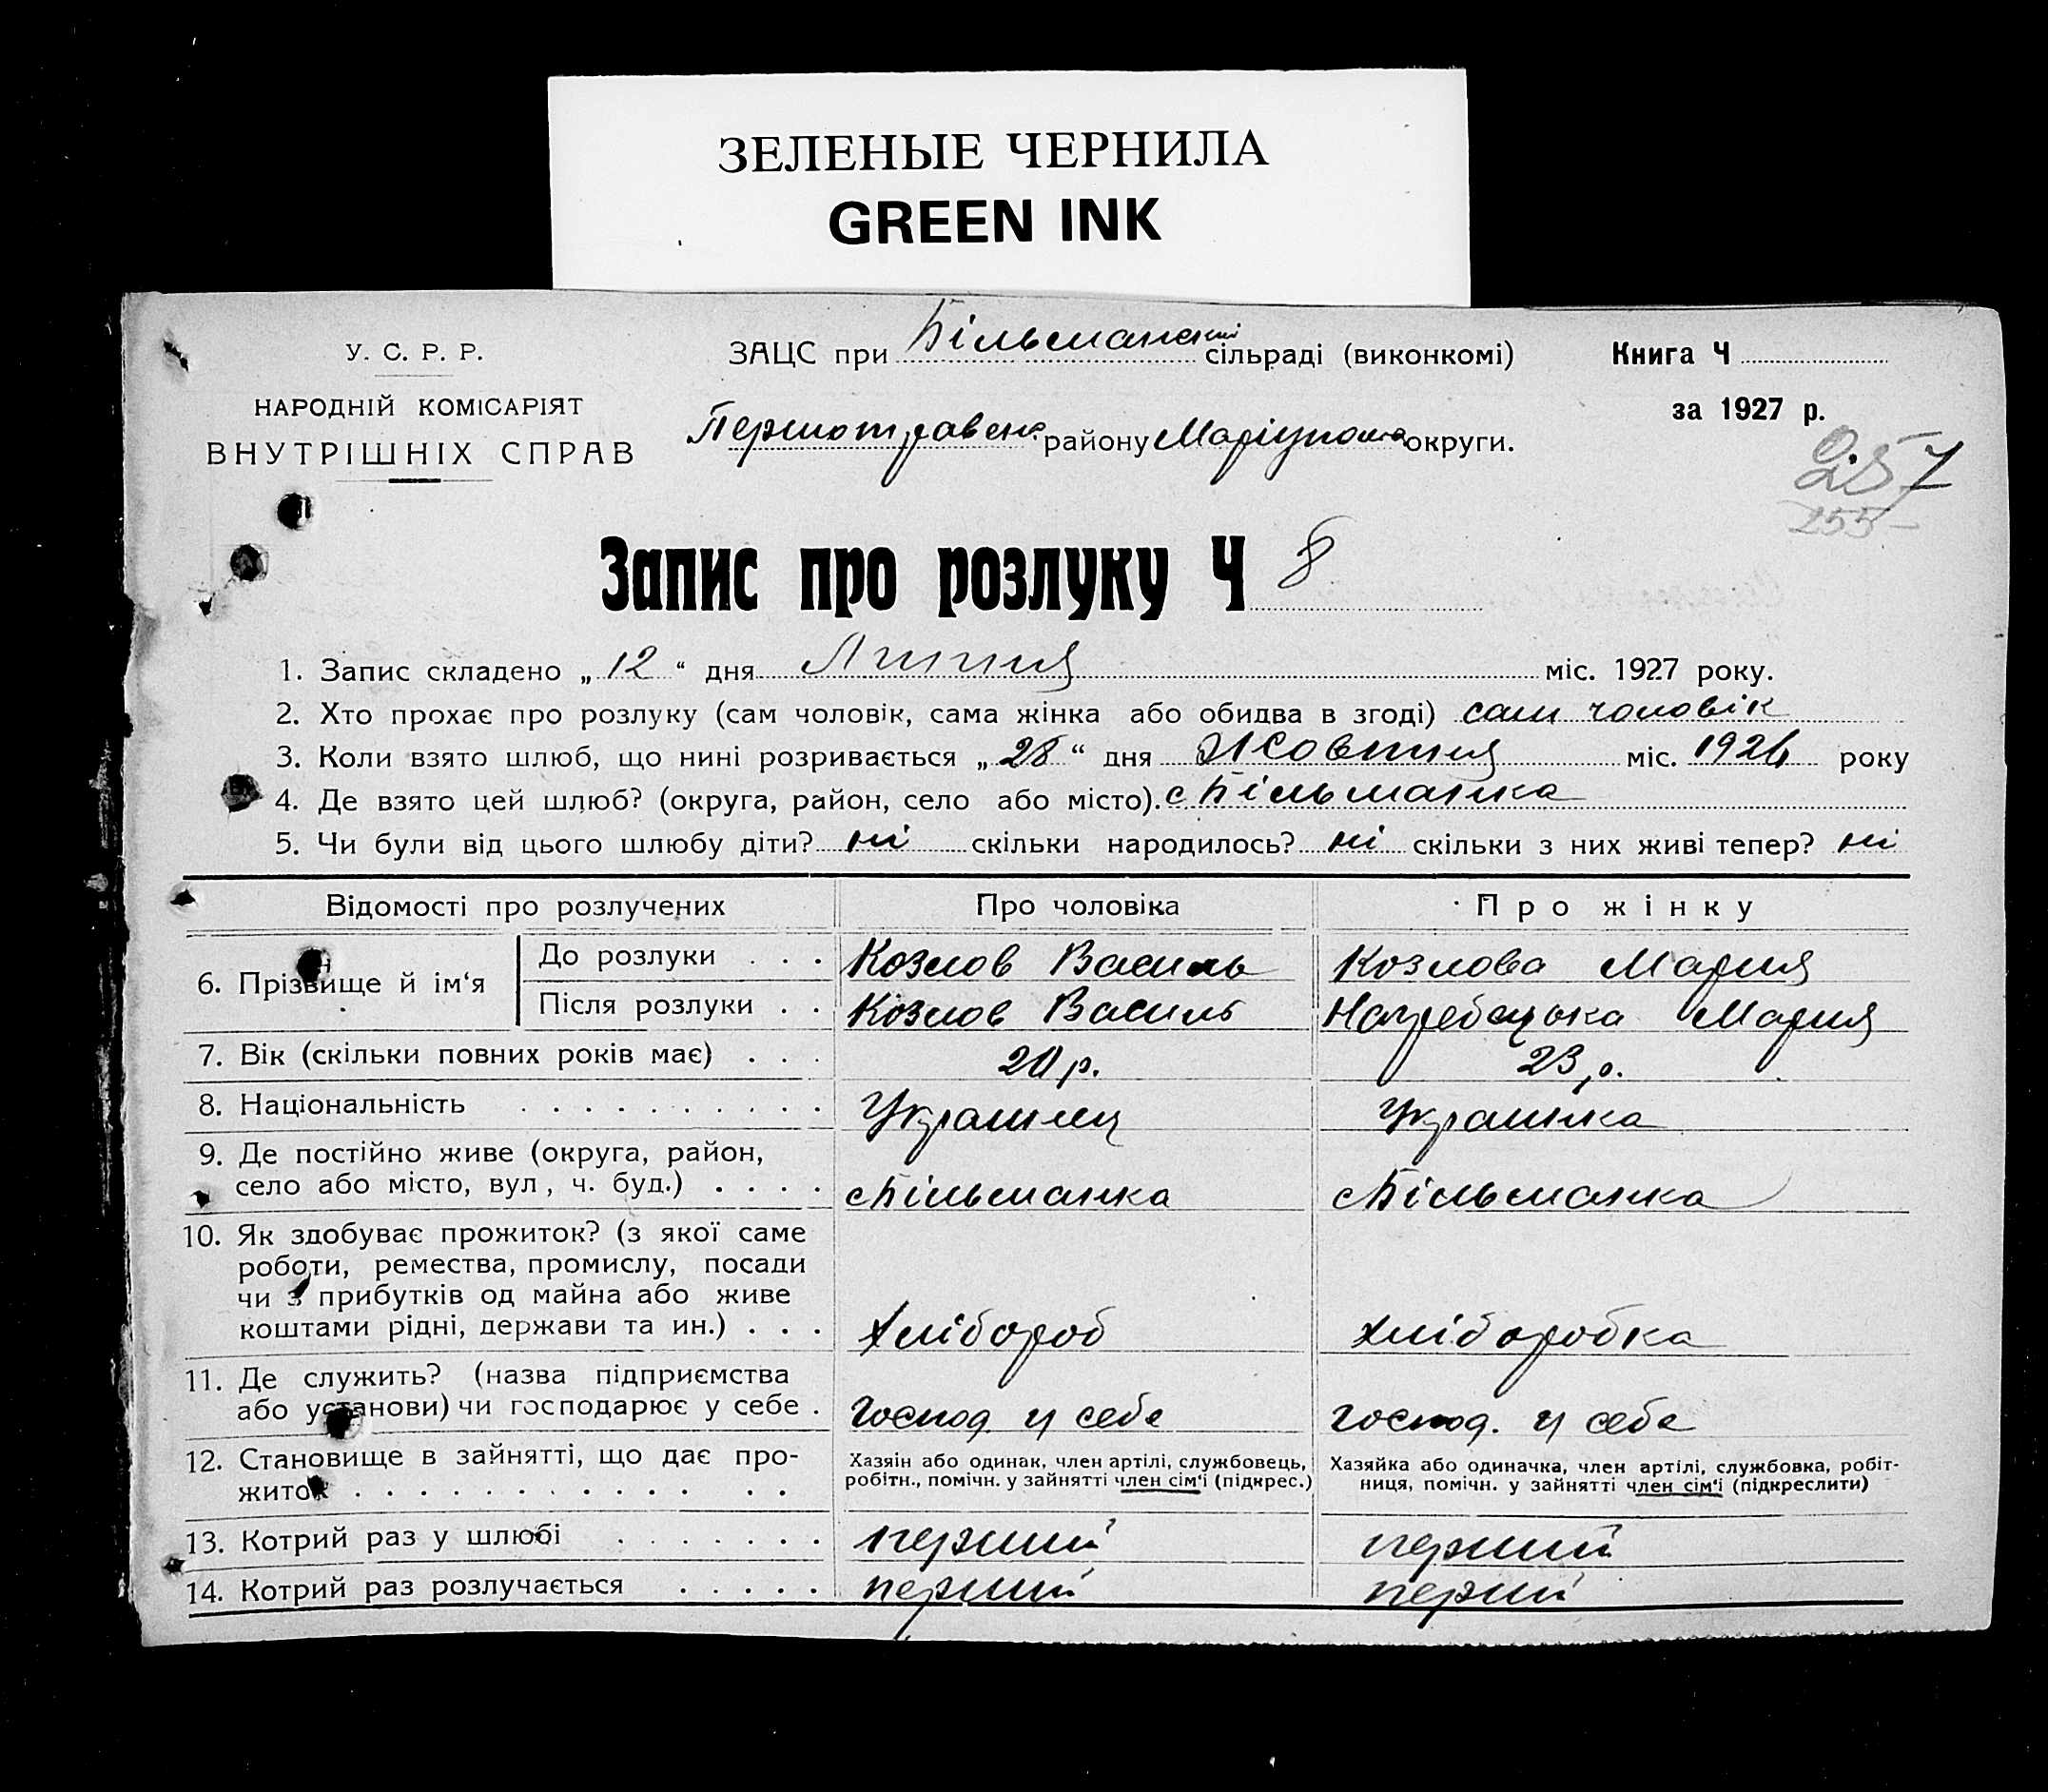 ЗЕЛЕНЫЕ ЧЕРНИЛА
GREEN INK
У. С. Р. Р.
НАРОДНІЙ КОМІСАРІЯТ
ВНУТРІШНІХ СПРАВ
ЗАЦС при Більманській сільраді (виконкомі)
Першотравень району Маріупольс округи.
Книга Ч
за 1927 р.
257
255
Запис про розлуку Ч 8
1. Запис складено „ 12 “ дня Липня міс. 1927 року.
2. Хто прохає про розлуку (сам чоловік, сама жінка або обидва в згоді) сам чоловік
3. Коли взято шлюб, що нині розривається „ 28 “ дня Жовтня міс. 1926 року
4. Де взято цей шлюб? (округа, район, село або місто). с Більманка
5. Чи були від цього шлюбу діти? ні скільки народилось? ні скільки з них живі тепер? ні
Відомості про розлучених Про чоловіка Про жінку
6. Прізвище й ім‘я До розлуки . . . Козлов Василь Козлова Мария
Після розлуки . . Козлов Василь Нагребецька Мария
7. Вік (скільки повних років має) . . . 20 р. 23 р.
8. Національність . . . . . . . . . . Украинец Украинка
9. Де постійно живе (округа, район,
село або місто, вул, ч. буд.) . . . . с Більманка с Більманка
10. Як здобуває прожиток? (з якої саме
роботи, ремества, промислу, посади
чи з прибутків од майна або живе
коштами рідні, держави та ин.) . . . Хлібороб хліборобка
11. Де служить? (назва підприємства
або установи) чи господарює у себе . господ. у себе господ. у себе
12. Становище в зайнятті, що дає про-
житок . . . . . . . . . . . . .
Хазяін або одинак, член артілі, службовець,
робітн., помічн. у зайнятті член сім‘ї (підкрес.)
Хазяйка або одиначка, член артілі, службовка, робіт-
ниця, помічн. у зайнятті член сім‘ї (підкреслити)
13. Котрий раз у шлюбі . . . . . . . перший перший
14. Котрий раз розлучається . . . . . перший перший